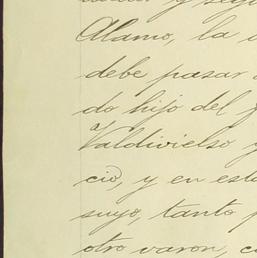 Alamo, la
debe pasar
do hijo del
a
Valdivielso y
cio, y en esto
suyo, tanto
otro varon, c